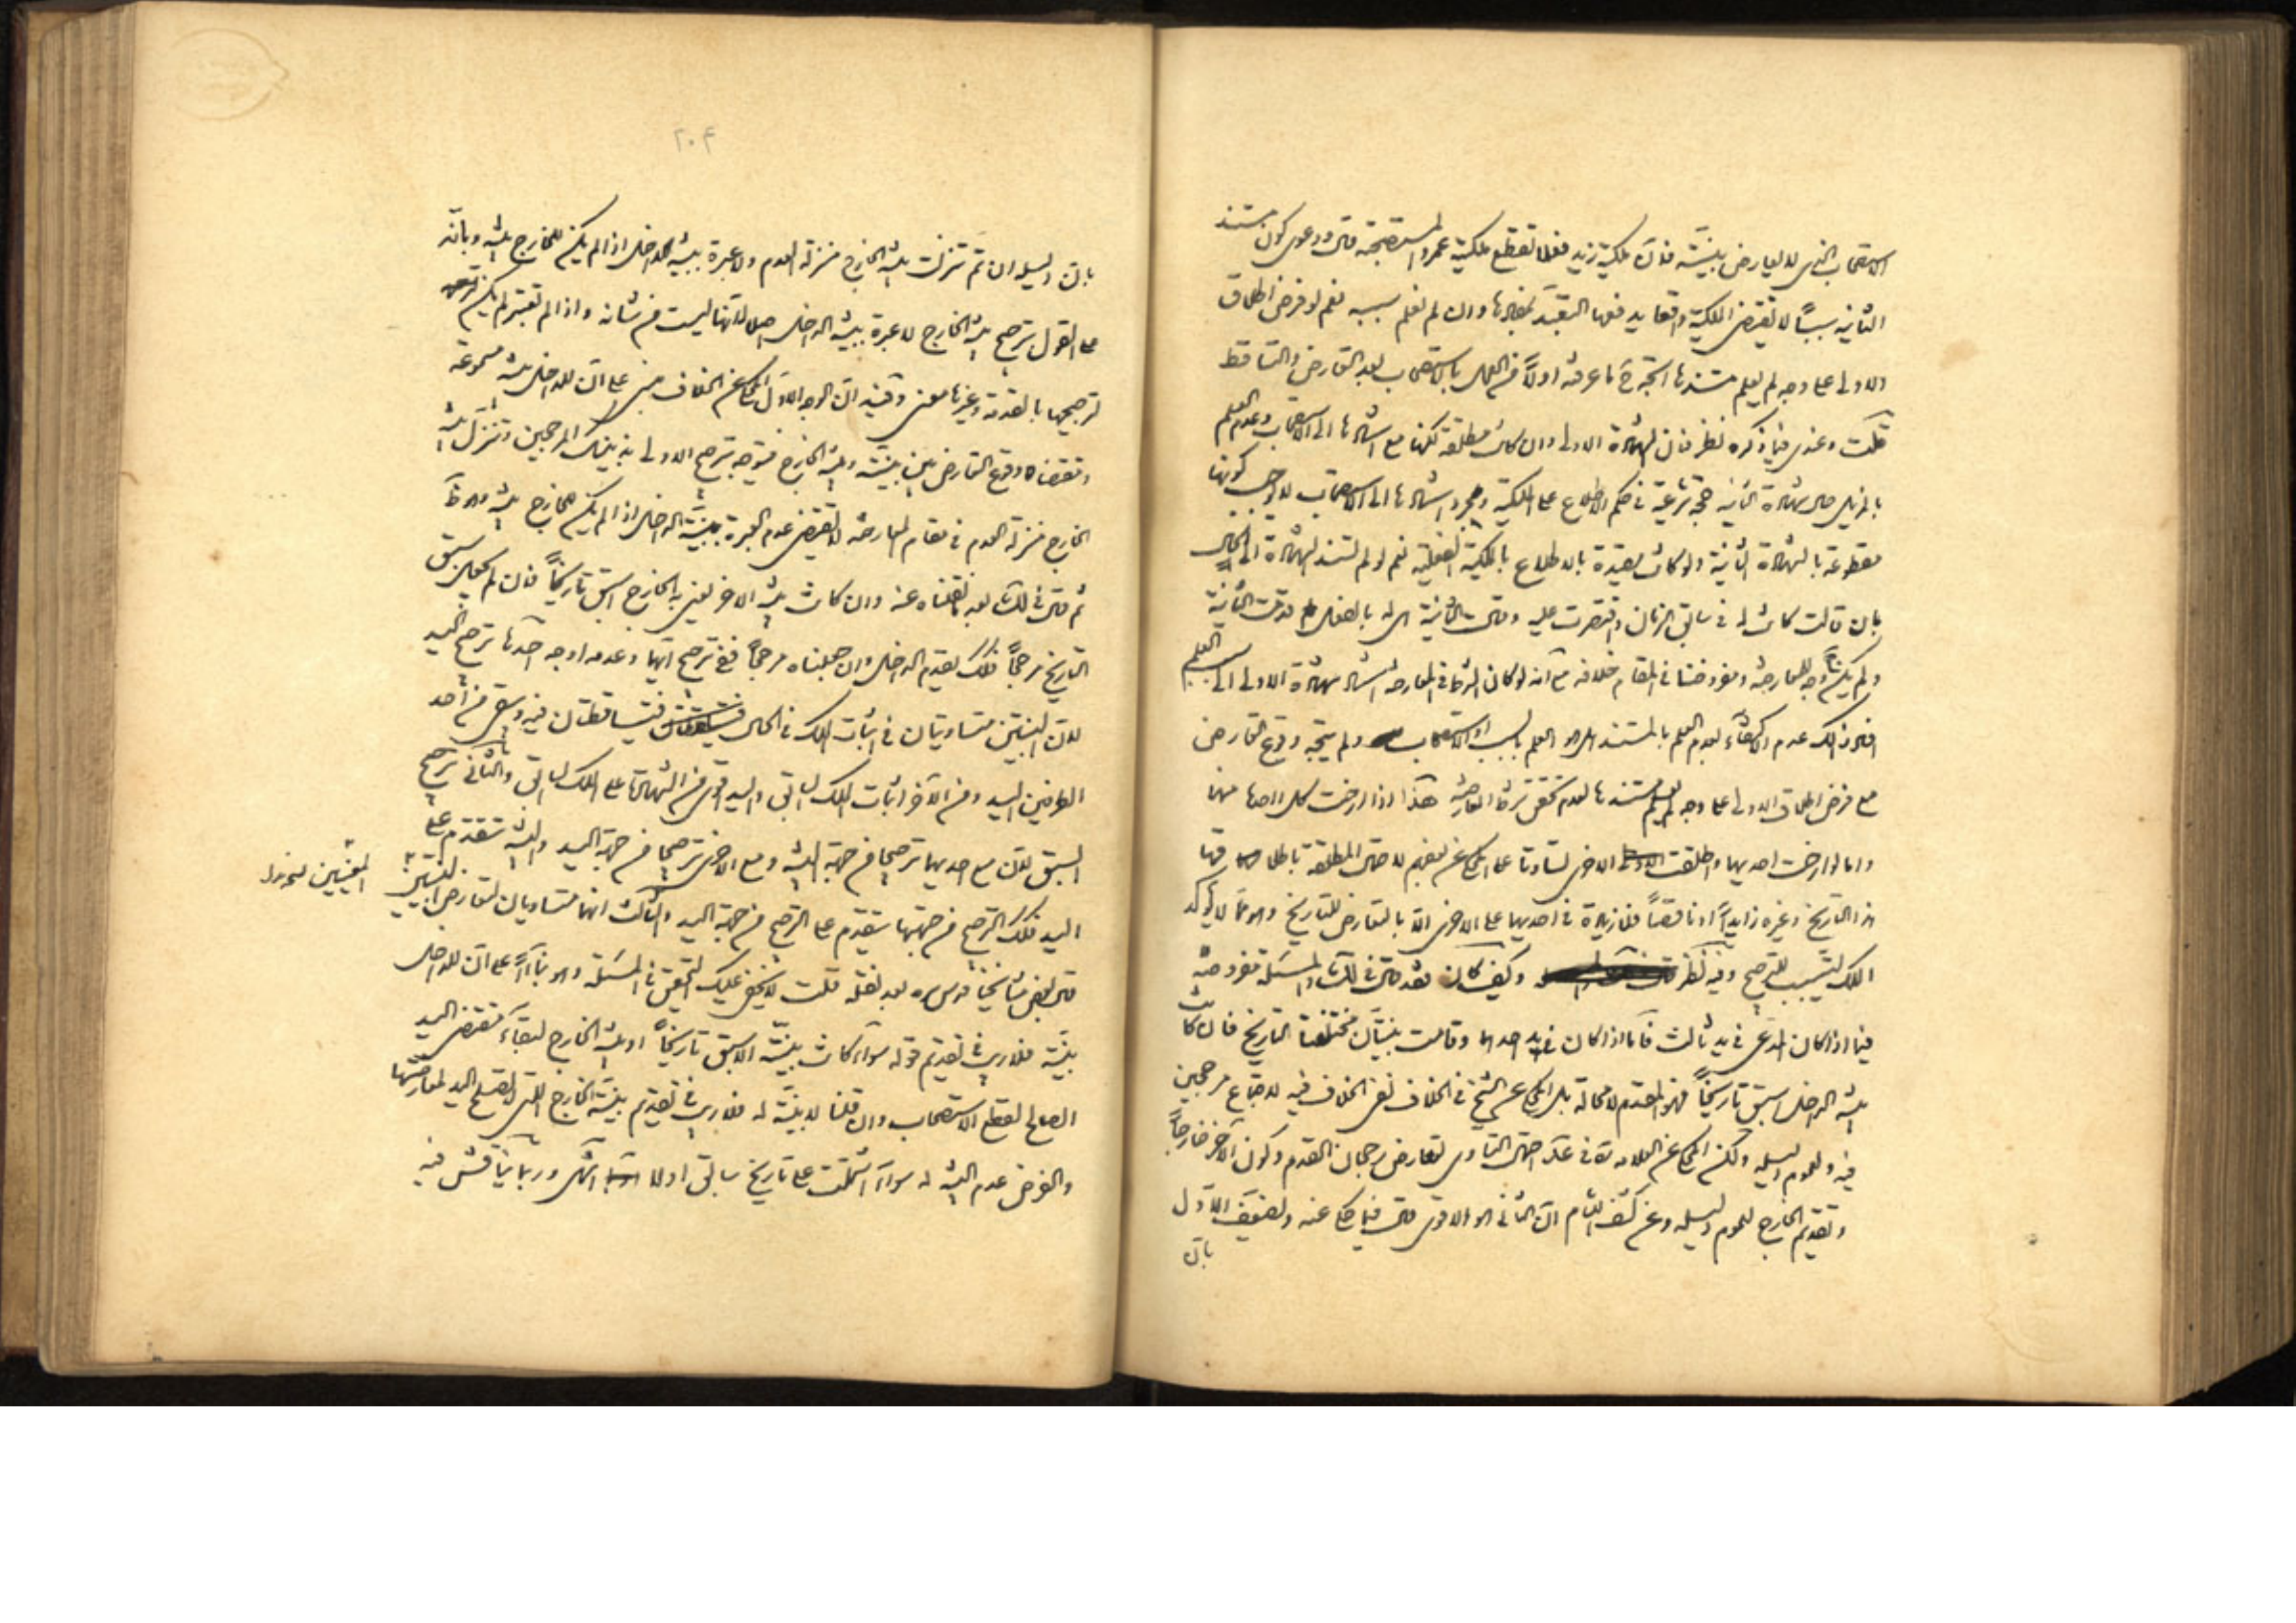 الاستصحاب الذى لا يعارض بينة فان ملكية زيد فعلا تقطع ملكية عمرو المستصحبة قال ودعوى كون مستند
الثانية سببا لا يقتضى الملكية واقعا يدفعها التعبد بمضمونها وان لم نعلم سببه نعم لو فرض اطلاق
الاولى على وجه لم يعلم مستندها اتجه ما عرفته اولا من العمل بالاستصحاب بعد التعارض والتساقط
قلت وعندى فيما ذكره نظر فان الشهادة الاولى وان كانت مطلقة لكنها مع استنادها الى الاستصحاب وعدم العلم
بالمزيل حال شهادة الثانية حجة شرعية فى حكم الاطلاع على الملكية ومجرد استنادها الى الاستصحاب لا يوجب كونها
مقطوعة بالشهادة الثانية ولو كانت مقيدة بالاطلاع بالملكية الفعلية نعم لو لم تستند الشهادة الى الحال
بان قالت كانت له فى سابق الزمان واقتصرت عليه وقالت الثانية انى له بالفعل قدمت الثانية
ولم يكن وجه للمعارضة ومفروضنا فى المقام خلافه مع انه لو كان الشرط فى المعارضة استناد شهادة الاولى الى العلم
اقول ذلك عدم الاكتفاء بعدم العلم بالمستند اهو العلم بالسبب او الاستصحاب ولم يتجه وقوع التعارض
مع فرض اطلاق الاولى على وجه لم يعلم مستندها لعدم تحقق شرط المعارضة هذا اذا ارخت كل واحدة منهما
واما لو ارخت احديهما واطلقت الاخرى تساوتا على المحكى عن بعضهم لاحتمال المطلقة
هذا التاريخ وغيره زايدا او ناقصا فلا زيادة فى احديهما على الاخرى الا بالتعارض للتاريخ وهو مما لا يؤكد
الملك ليتسبب للترجيح وفيه نظر وكيف كان فقد قال فى لك والمسئلة مفروضة
فيما اذا كان المدعى فى يد ثالث فاما اذا كان فى يد احدهما وقامت بينتان مختلفتا التاريخ فان كانت
بينة الداخل اسبق تاريخا فهو المقدم لا محالة بل المحكى عن الشيخ فى الخلاف نفى الخلاف فيه لاجتماع مرجحين
فيه ولعموم اليد ولكن المحكى عن العلامة ره فى عد احتمال التساوى لتعارض رجحان التقدم وكون الآخر خارجا
وتقديم الخارج لعموم اليد وعن كشف اللثام ان الثانى هو الاقوى قال فيما حكى عنه ولضعف الاول
بان
٢٠٤
بان اليد ان تم تنزلت بينة الخارج منزلة العدم ولا عبرة ببينة الداخل اذا لم يكن للخارج بينة وبانه
على القول بترجيح بينة الخارج لا عبرة ببينة الداخل اصلا لانها ليست من شانه واذا لم تعتبر لم يكن
لترجيحها بالقدمة وغيرها معنى وفيه ان الوجه الاول المحكى عن الخلاف مبنى على ان للداخل بينة مسموعة
ومقتضاه وقوع التعارض بين بينته وبينة الخارج فيتوجه ترجيح الاولى بذينك المرجحين وتنزل بينة
الخارج منزلة العدم فى مقام المعارضة لا يقتضى عدم العبرة ببينة الداخل اذا لم يكن للخارج بينة
ثم قال فى لك بعد ما نقلناه عنه وان كانت بينة الاخر يعنى به الخارج اسبق تاريخا فان لم يجعل سبق
التاريخ مرجحا فكك يقدم الداخل وان جعلناه مرجحا ففى ترجيح ايهما وعدمه اوجه احدها ترجيح اليد
لان البينتين متساويتان فى اثبات الملك فى الحال فيتساقطان فيه وبقى من احد
الطرفين اليد ومن الآخر اثبات الملك السابق واليد اقوى من الشهادة على الملك السابق والثانى ترجيح
السبق لان مع احديهما ترجيحا من جهة البينة ومع الاخرى ترجيحا من جهة اليد والبينة تتقدم على
اليد فكك الترجيح من جهتها يتقدم على الترجيح من جهة اليد والثالث انهما متساويان لتعارض البينتين
قال بعض مشايخنا قدس سره بعد نقله قلت لا يخفى عليك التحقيق فى المسئلة وهو بناءً على ان للداخل
بينة فلا ريب فى تقديم قوله سواء كانت بينته الاسبق تاريخا او بينة الخارج لبقاء مقتضى اليد
الصالح لقطع الاستصحاب وان قلنا لا بينة له فلا ريب فى تقديم بينة الخارج التى لا تصلح اليد لمعارضتها
والفرض عدم البينة له سواء اشتملت على تاريخ سابق او لا انتهى وربما يناقش فيه